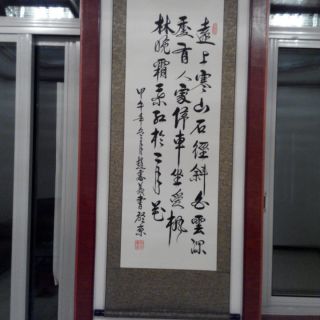 遠上寒山石徑斜白雲深
處有人家停車坐愛楓
林晚霜葉紅於二月花
甲午年冬月趙憲義書於京